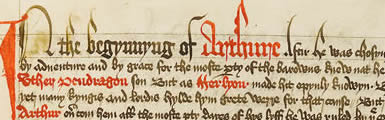 In the begynnyng of Arthure Afftir he was chosyn
by adventure and by grace for the moste pty of the barowns knew nat he
Uther Pendragon son But as Merlyon made hit opynly knowyn
yet many kyngis and lordis hylde hym grete werre for that cause
Arthur com hem all the moste pty dayes of hys lyff he was ruled by